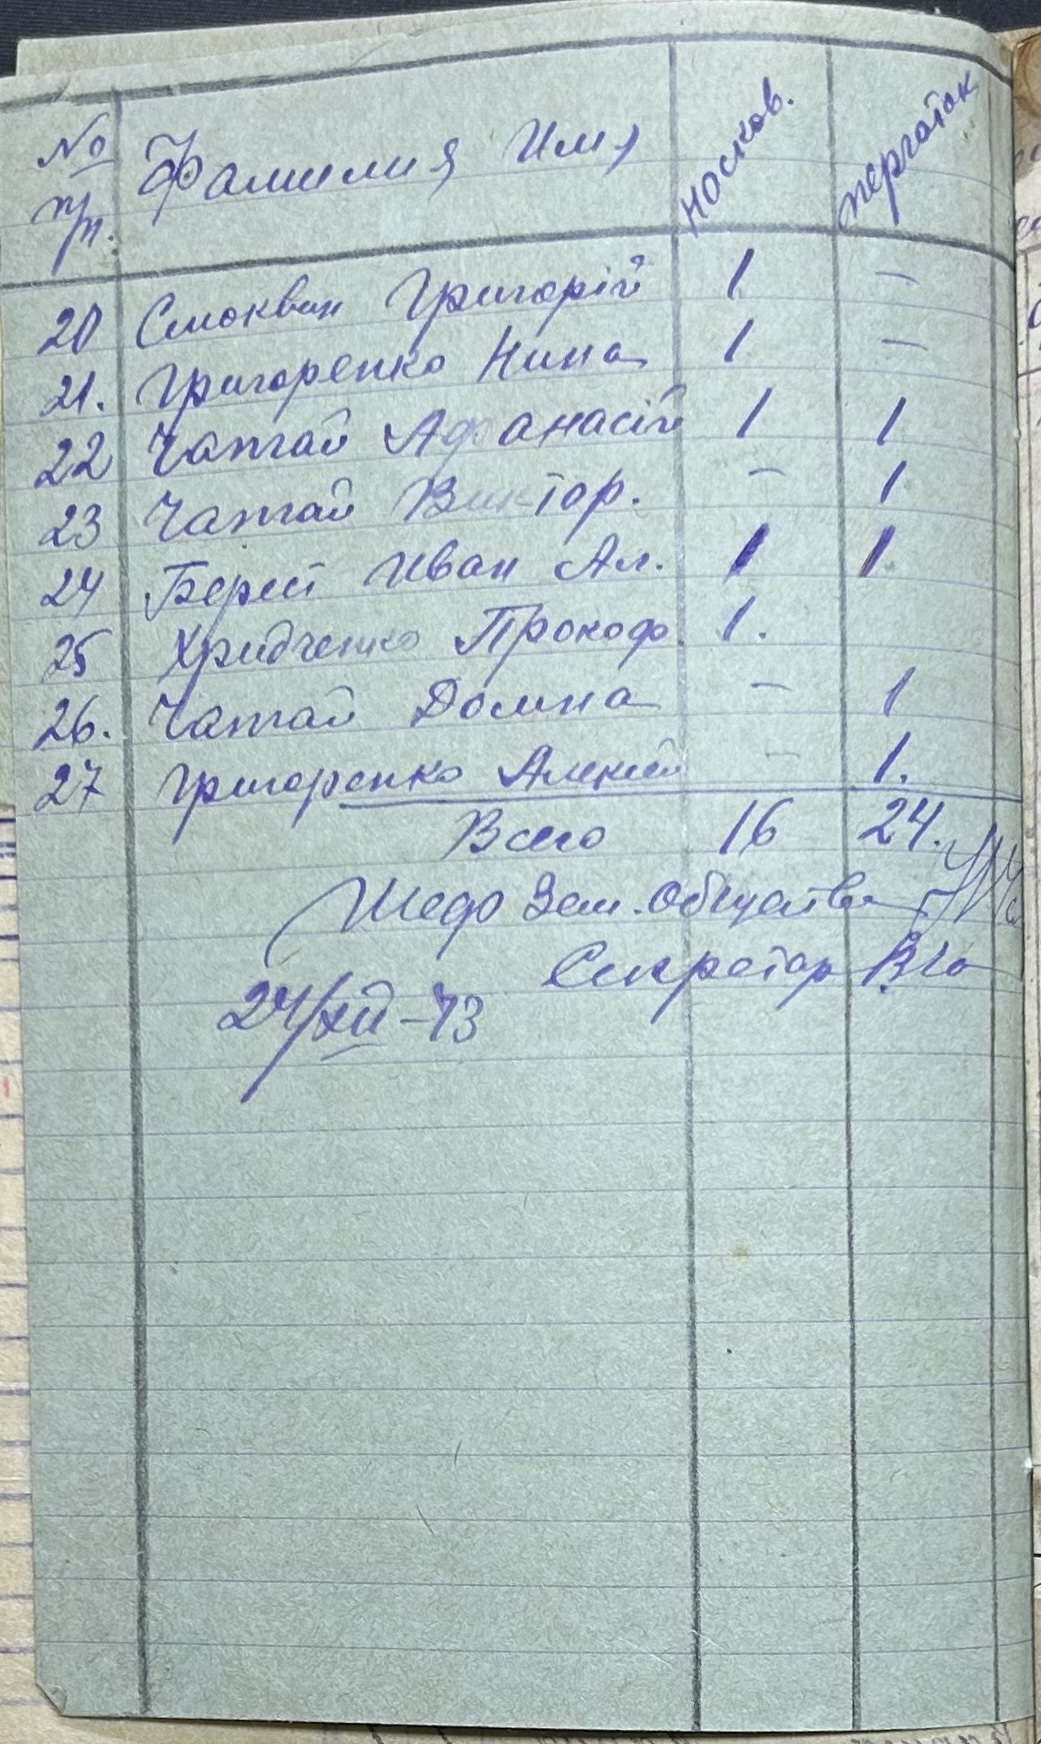 № п/п. Фамилия Имя носков. перчаток
20 Смоквин Григорій 1 –
21. Григоренко Нина 1 –
22 Чапгай Афанасій 1 1
23 Чапгай Виктор. – 1
24 Берест Иван Ал. 1 1
25 Хридченко Прокоф. 1.
26. Чапгай Домна – 1
27 Григоренко Алексей – 1.
Всего 16 24.
Шеф Зем. Общества
Секретар
24/XII–43